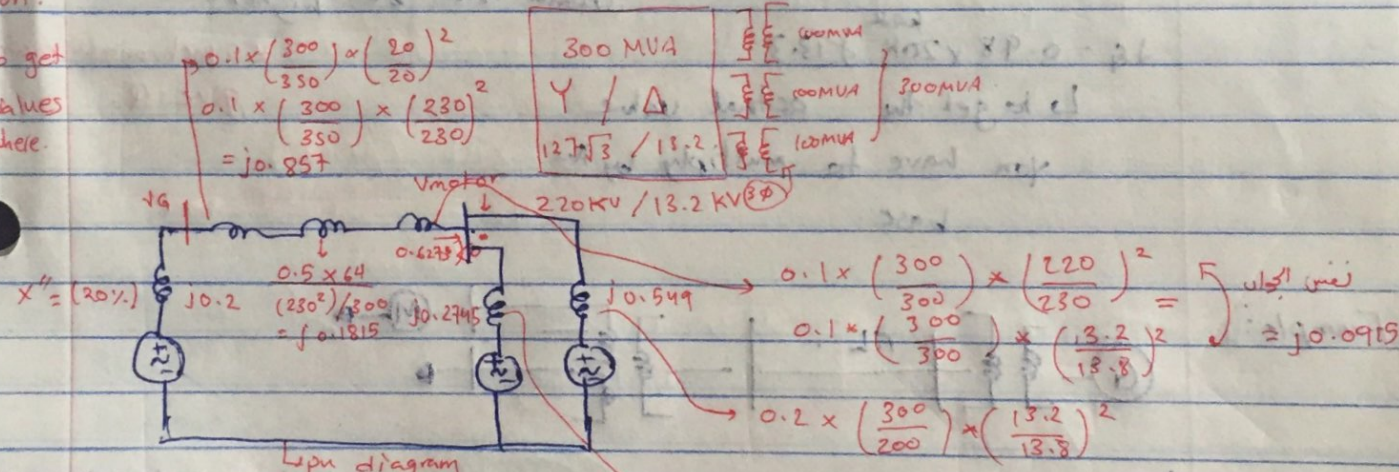 get
values
here.
0.1 × (300/350) × (20/20)²
0.1 × (300/350) × (230/230)²
= j0.857
300 MVA
Y / Δ
127√3 / 13.2
100MVA
100MVA
100MVA
300MVA
220KV / 13.2 KV 3φ
VG
Vmotor
X" = (20%)
j0.2
0.5 × 64
(230²)/300
= j0.1815
j0.2745
j0.549
0.1 × (300/300) × (220/230)² =
0.1 × (300/300) × (13.2/13.8)²
= j0.0915
0.2 × (300/200) × (13.2/13.8)²
pu diagram